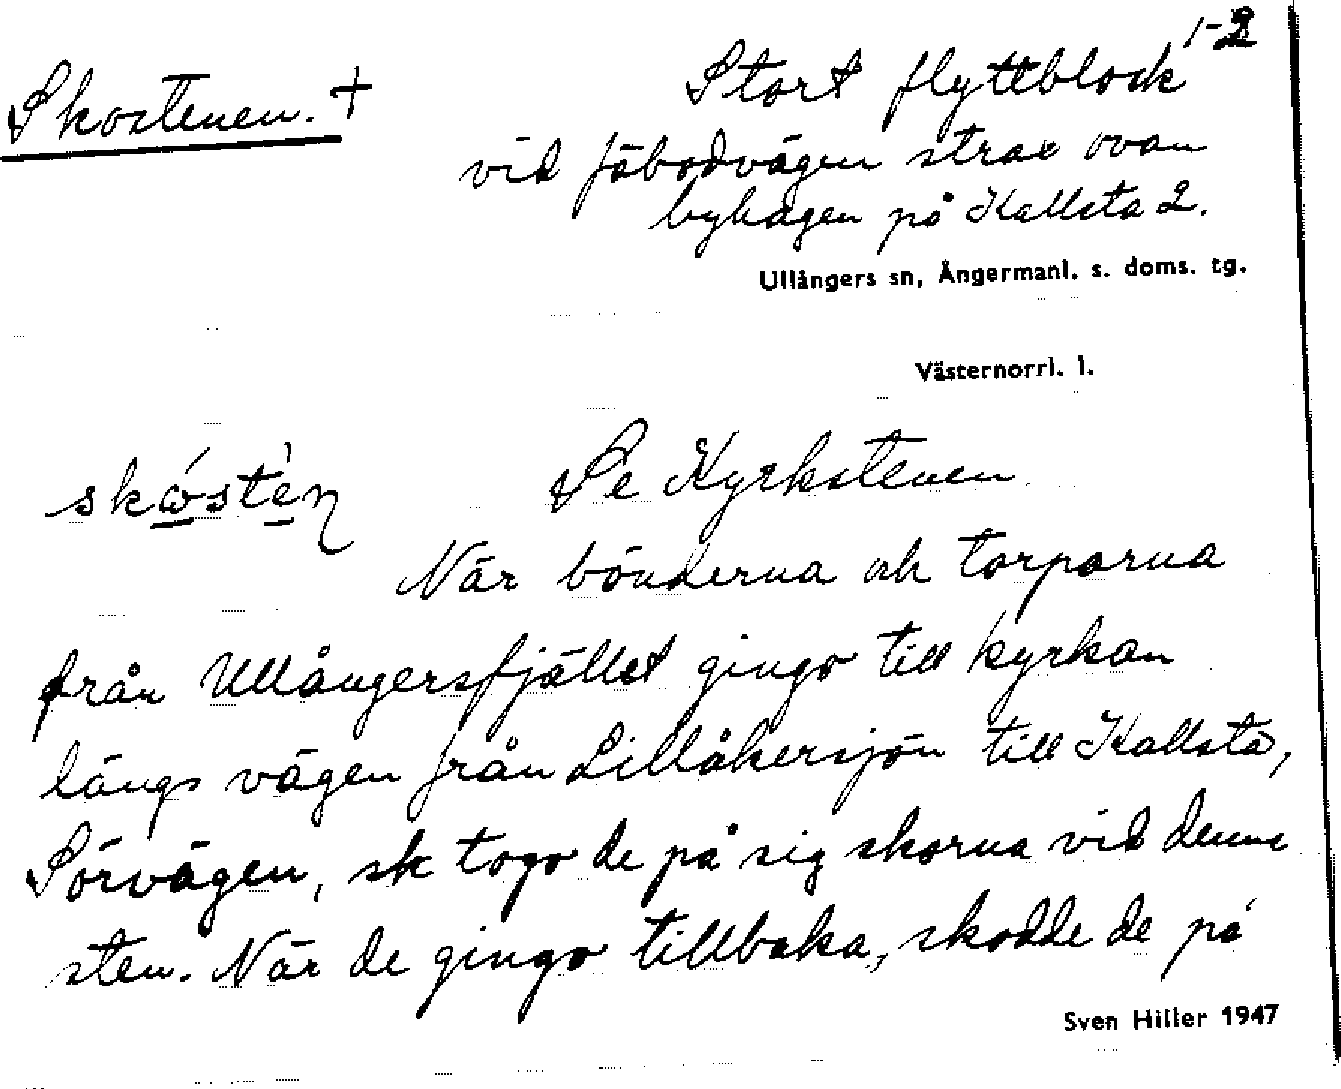 1-2
Skostenen. +
Stort flyttblock
vid fäbodvägen strax ovan
byhagen på Kallsta 2.
Ullångers sn, Ångermanl. s. doms. tg.
Västernorrl. l.
Se Kyrkstenen
När bönderna och torparna
från Ullångersfjället gingo till kyrkan
längs vägen från Lillåkersjön till Kallsta,
Sörvägen, sk togo de på sig skorna vid denne
sten. När de gingo tillbaka, skodde de på
Sven Hiller 1947